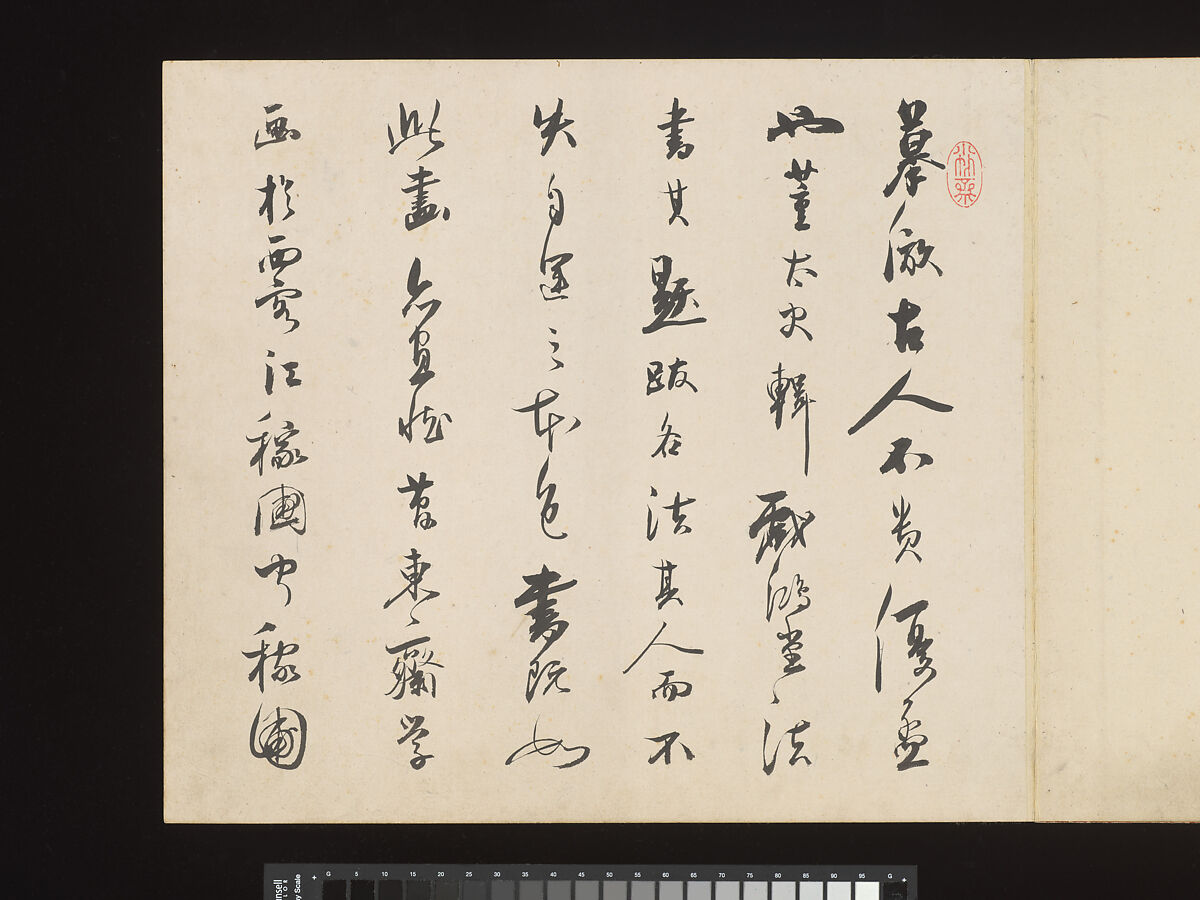 摹倣古人不貴優孟
也董太史輯戲鴻堂法
書其題跋各法其人而不
失自運之本色書既如
此畫亦宜然昔東齋学
画於西客江稼圃稼圃
G 5 10 15 20 25 30 35 40 45 50 55 60 65 70 75 80 85 90 95 G